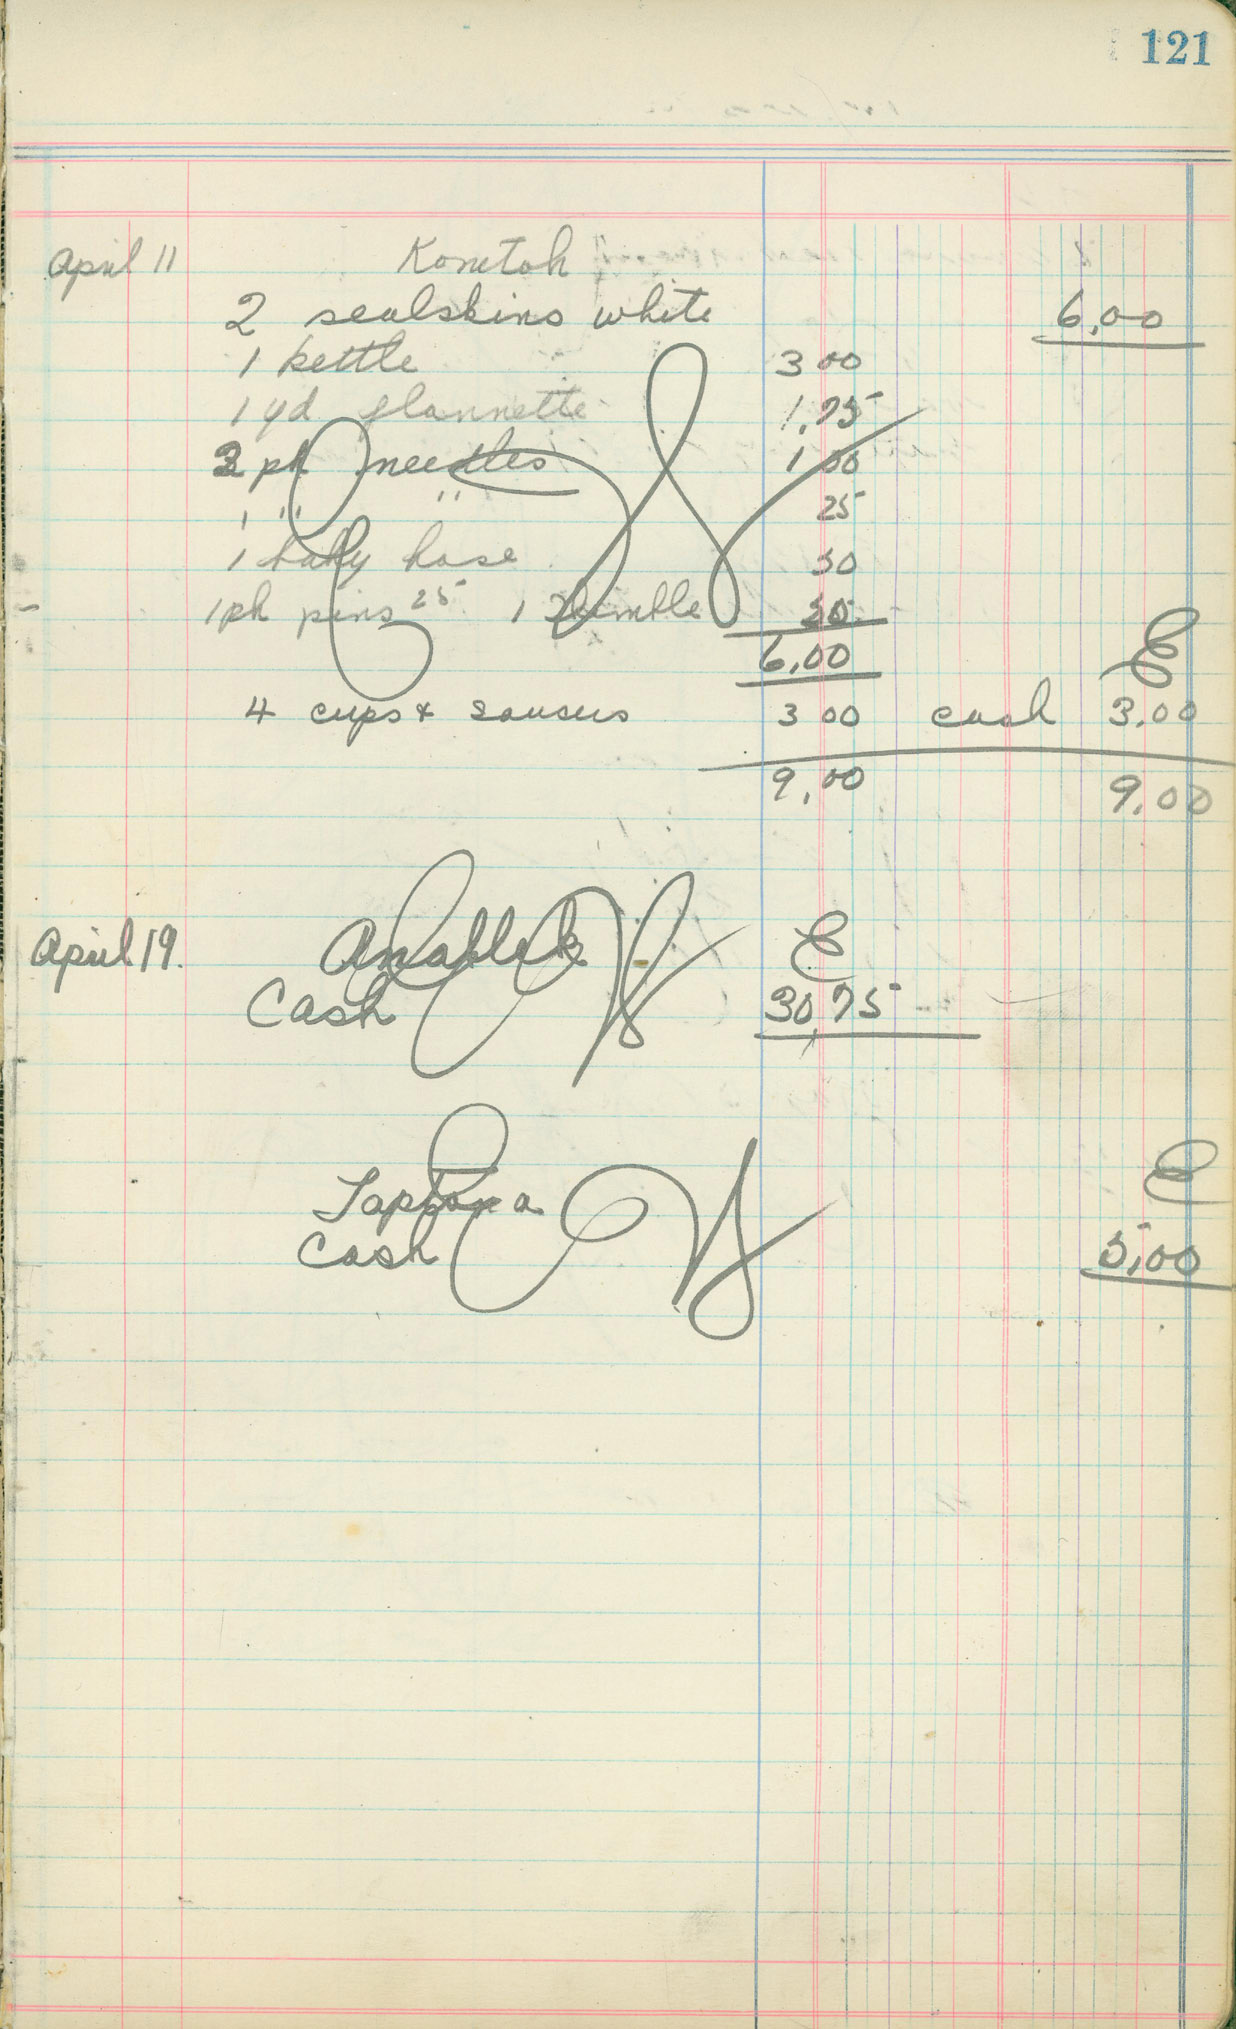 121
April 11 Konetok
2 sealskins white 6,00
1 kettle 3 00
1 yd flannette 1,75
pk needles 1 00
1 " " 25
1 baby hose
1 pk pins 25 1 Thimble
6,00
4 cups & sausers 3 00 cash 3.00
9,00 9,00
April 19. E
Cash 30,75
E
Cash 5,00